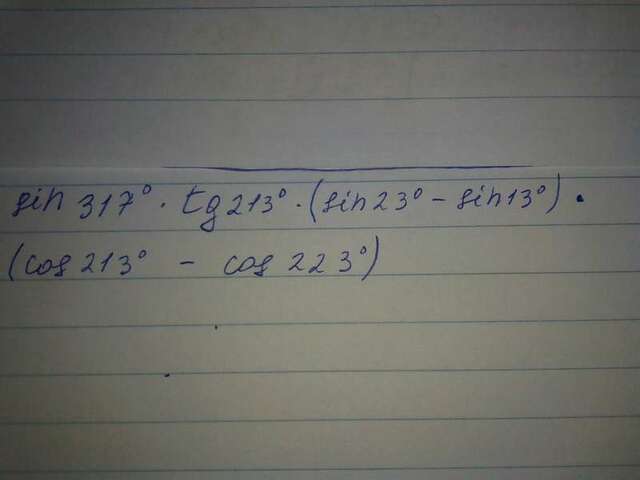 sin 317° · tg 213° · (sin 23° – sin 13°) ·
(cos 213° – cos 223°)